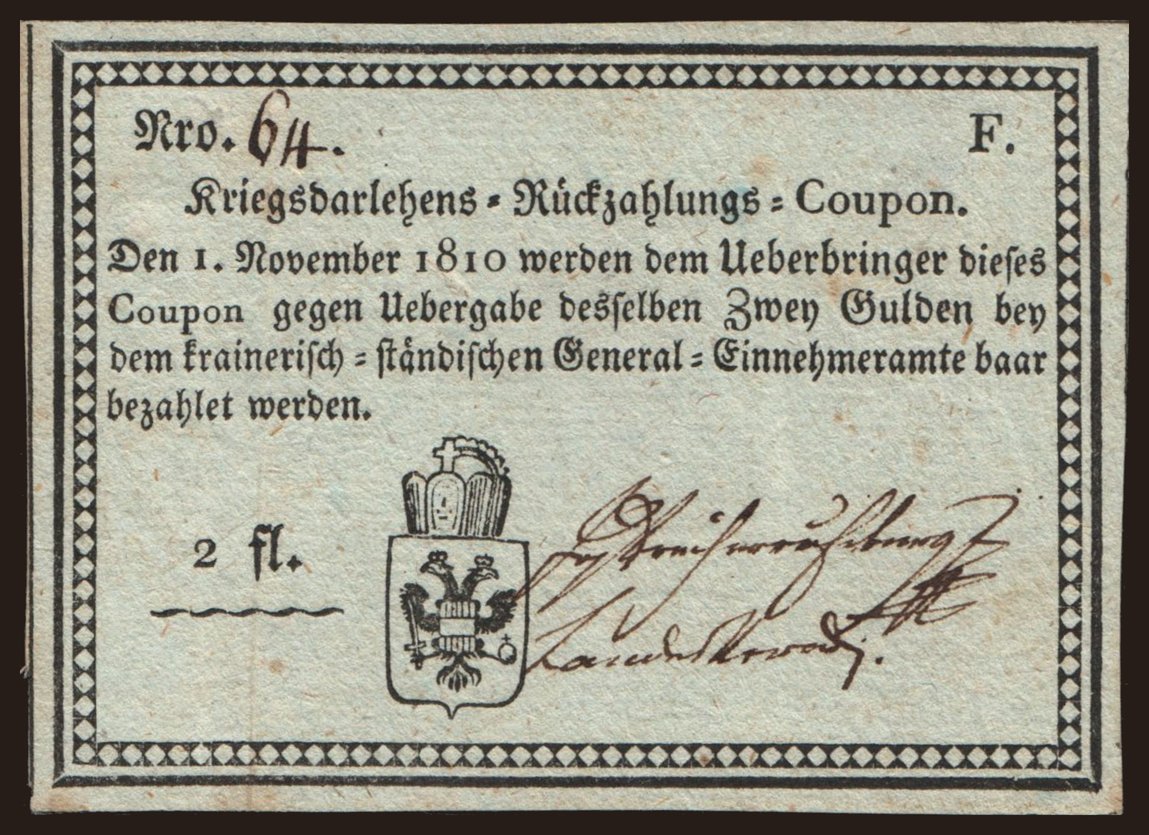 Nro. 64. F.
Kriegsdarlehens-Rückzahlungs-Coupon.
Den 1. November 1810 werden dem Ueberbringer dieses
Coupon gegen Uebergabe desselben Zwey Gulden bey
dem krainerisch-ständischen General-Einnehmeramte baar
bezahlet werden.
2 fl.